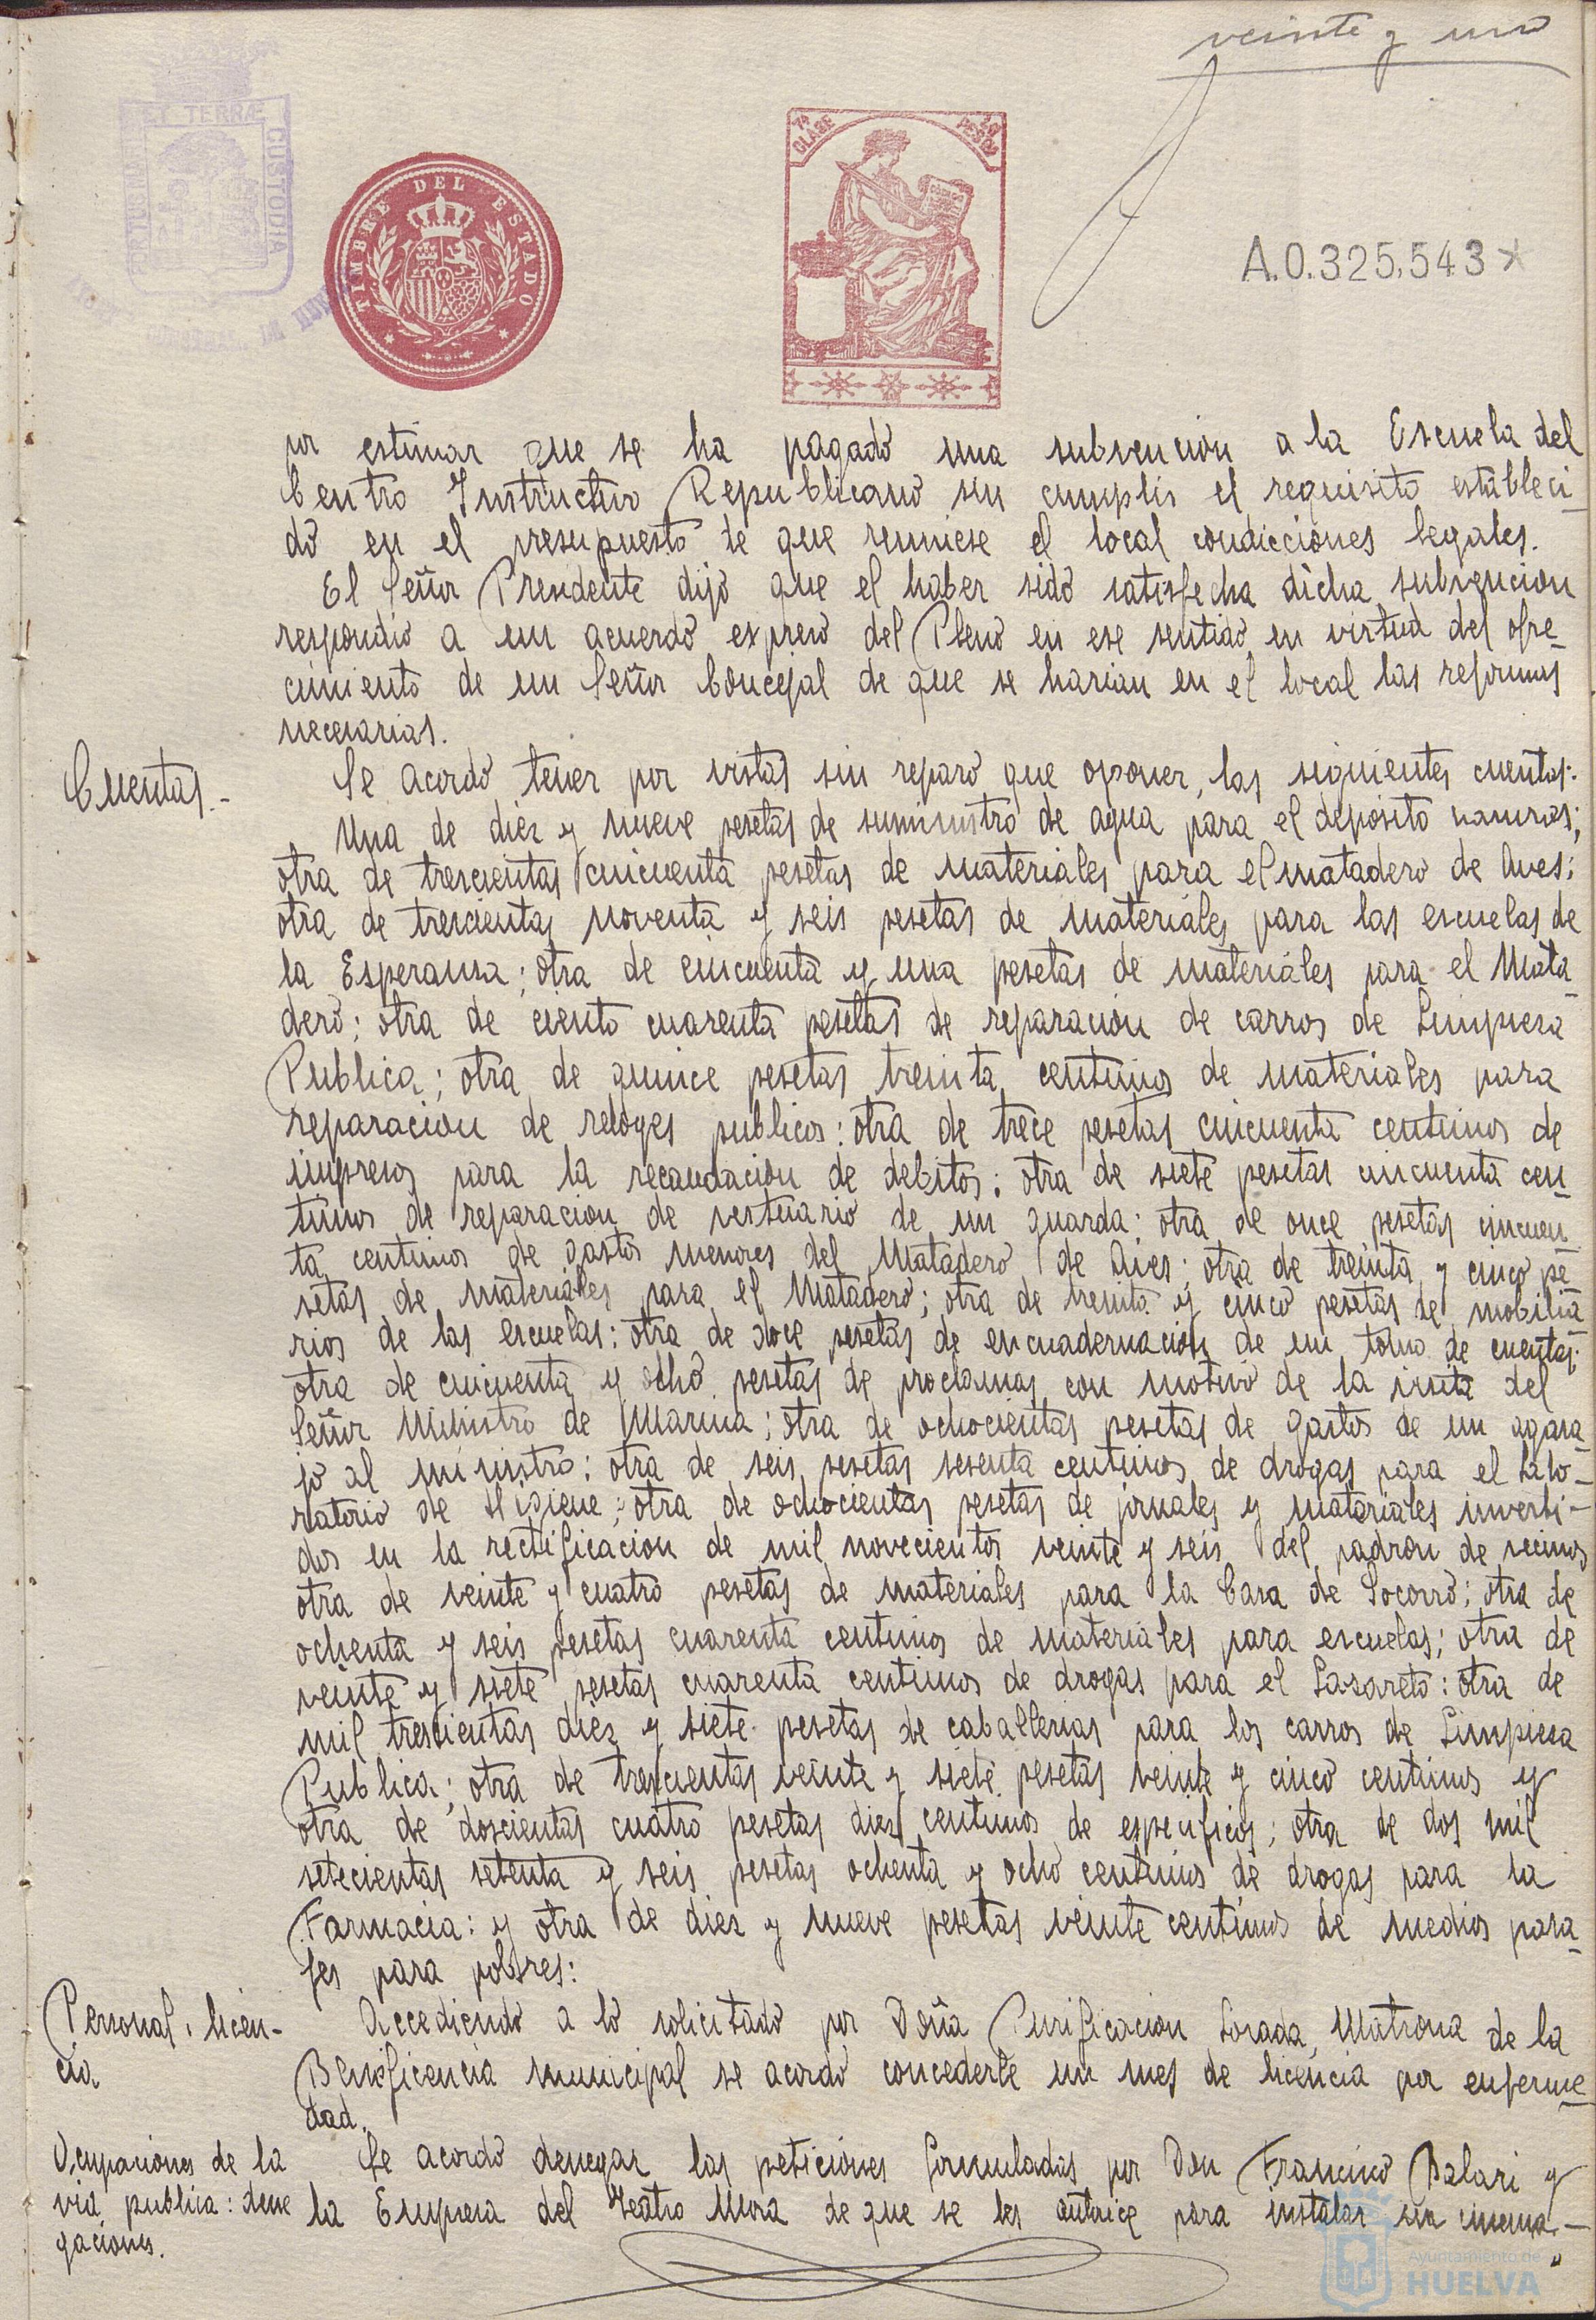 veinte y uno
ET TERRÆ
CUSTODIA
PORTUS MARIS
TIMBRE DEL ESTADO
7ª CLASE
A.0.325.543*
por estimar que se ha pagado una subvencion a la Escuela del
Centro Instructivo Republicano sin cumplir el requisito estableci_
do en el presupuesto de que reuniese el local condicciones legales.
El Señor Presidente dijo que el haber sido satisfecha dicha subvencion
respondió a un acuerdo expreso del Pleno en ese sentido en virtud del ofre_
cimiento de un Señor Concejal de que se harian en el local las reformas
necesarias.
Cuentas.-
Se acordó tener por vistas sin reparo que oponer, las siguientes cuentas:
Una de diez y nueve pesetas de suministro de agua para el deposito
otra de trescientas cincuenta pesetas de materiales para el matadero de Aves;
otra de trescientas noventa y seis pesetas de materiales para las escuelas de
la Esperanza; otra de cincuenta y una pesetas de materiales para el Mata_
dero; otra de ciento cuarenta pesetas de reparacion de carros de Limpieza
Publica; otra de quince pesetas treinta centimos de materiales para
reparacion de reloges publicos: otra de trece pesetas cincuenta centimos de
impresos para la recaudacion de debitos; otra de siete pesetas cincuenta cen_
timos de reparacion de vestuario de un guarda; otra de once pesetas cincuen_
ta centimos de gastos menores del Matadero de Aves; otra de treinta y cinco pe_
setas de materiales para el Matadero; otra de treinta y cinco pesetas de mobilia_
rios de las escuelas: otra de doce pesetas de encuadernacion de un tomo de cuentas:
otra de cincuenta y ocho pesetas de proclamas con motivo de la visita del
Señor Ministro de Marina; otra de ochocientas pesetas de gastos de un agasa_
jo al ministro: otra de seis pesetas sesenta centimos de drogas para el Labo_
ratorio de Higiene; otra de ochocientas pesetas de jornales y materiales inverti-
dos en la rectificacion de mil novecientos veinte y seis del padron de vecinos
otra de veinte y cuatro pesetas de materiales para la Casa de Socorro; otra de
ochenta y seis pesetas cuarenta centimos de materiales para escuelas; otra de
veinte y siete pesetas cuarenta centimos de drogas para el Lazareto: otra de
mil trescientas diez y siete pesetas de caballerias para los carros de Limpieza
Publica; otra de trescientas veinte y siete pesetas veinte y cinco centimos y
otra de doscientas cuatro pesetas diez centimos de especificos; otra de dos mil
setecientas setenta y seis pesetas ochenta y ocho centimos de drogas para la
Farmacia: y otra de diez y nueve pesetas veinte centimos de medios pasa_
jes para pobres:
Personal: licen-
cia
Accediendo a lo solicitado por Doña Purificacion Losada, Matrona de la
Beneficencia municipal se acordó concederle un mes de licencia por enferme_
dad.
Ocupaciones de la
via publica: dene
gaciones.
Se acordó denegar las peticiones formuladas por Don Francisco Balari y
la Empresa del Teatro Mora de que se les autorice para instalar un cinema_
Ayuntamiento de
HUELVA